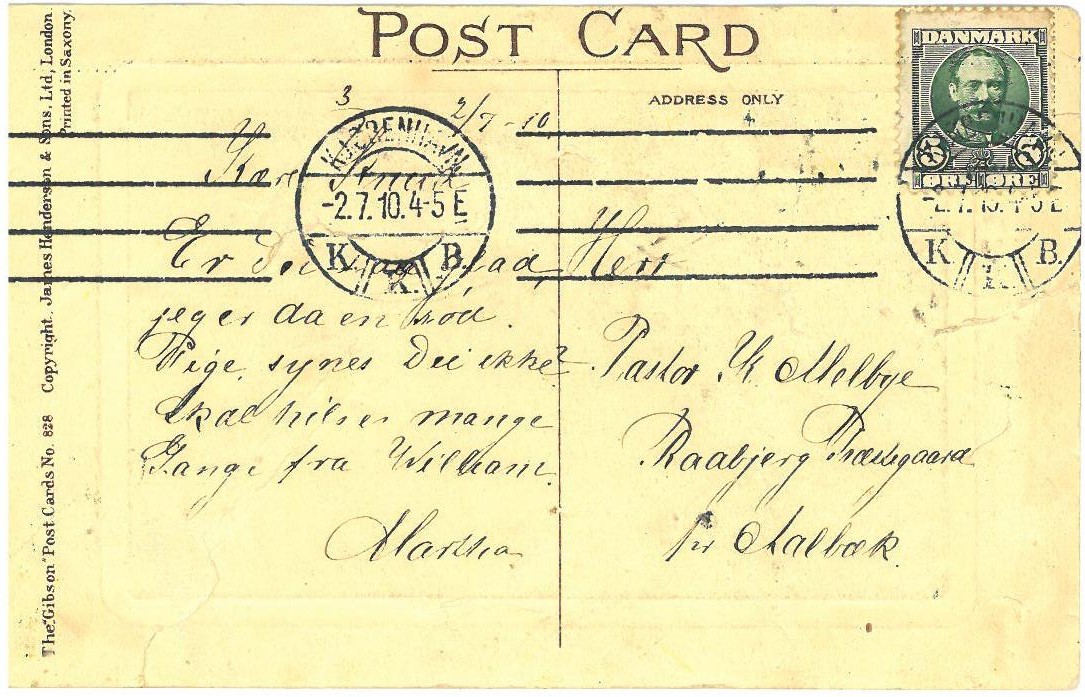 POST CARD
ADDRESS ONLY
DANMARK
5 5
ØRE ØRE
3
2/7-10
KJØBENHAVN
-2.7.10.4-5 E
K. K. B.
-2.7.10.4-5 E
K. K. B.
Kære
Er Du glad,
jeg er da en sød
Pige, synes Du ikke?
Skal hilse mange
Gange fra William.
Martha
Herr
Pastor K Melbye
Raabjerg Præstegaard
pr Aalbæk.
The "Gibson" Post Cards No. 828 Copyright. James Henderson & Sons, Ltd, London.
Printed in Saxony.